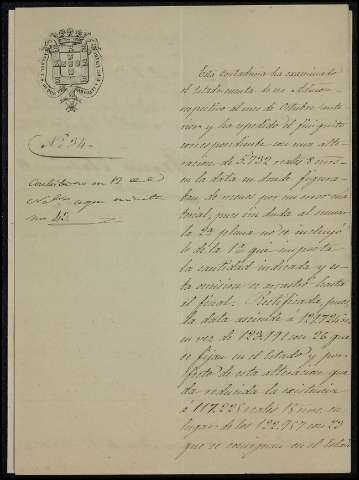 Nº 34
Esta contaduria ha examinado
el Estado cuenta de su Admon
respectivo al mes de Octubre ante
rior y ha espedido el finiquito
correspondiente con una alte
racion de 5.732 reales 8 mrs
en la data en donde figura
ban de menos por un error ma
terial, pues sin duda al sumar
la 2ª plana no se incluyó
lo de la 1ª que importa
la cantidad indicada y es
ta omision se arrastró hasta
el final. Rectificada, pues,
la data asciende á
en vez de 123.191 con 26 que
se fijan en el Estado y por
efecto de esta alteracion que
da reducida la existencia
á 117.225 reales 15 mrs. en
lugar de los 122.957 con 23
que se consignan en el Estado